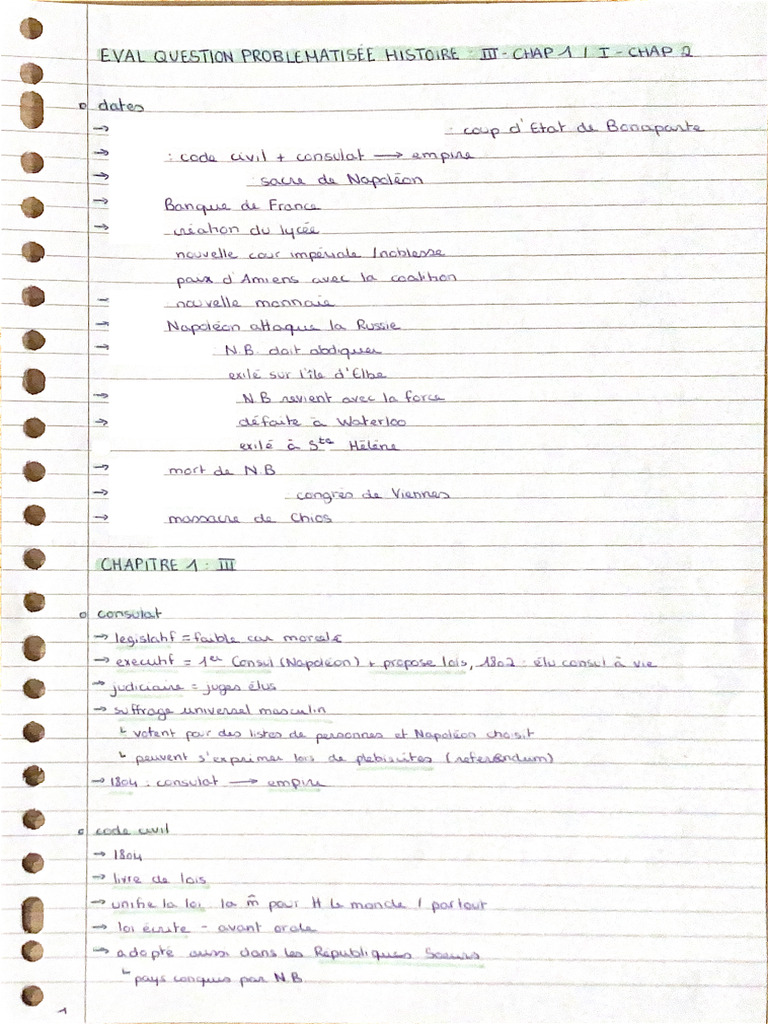 EVAL QUESTION PROBLEMATISÉE HISTOIRE : III - CHAP 1 / I - CHAP 2
o dates
→ : coup d'Etat de Bonaparte
→ : code civil + consulat → empire
→ : sacre de Napoléon
→ Banque de France
→ création du lycée
nouvelle cour impériale / noblesse
paix d'Amiens avec la coalition
→ nouvelle monnaie
→ Napoléon attaque la Russie
→ N.B. doit abdiquer
exilé sur l'île d'Elbe
→ N.B revient avec la force
→ défaite à Waterloo
exilé à Ste Hélène
→ mort de N.B
→ congrès de Viennes
→ massacre de Chios
CHAPITRE 1 : III
o consulat
→ legislatif = faible car morcelé
→ executif = 1er Consul (Napoléon) + propose lois, 1802 : élu consul à vie
→ judiciaire = juges élus
→ suffrage universel masculin
↳ votent par des listes de personnes et Napoléon choisit
↳ peuvent s'exprimer lors de plebiscites (referendum)
→ 1804 : consulat → empire
o code civil
→ 1804
→ livre de lois
→ unifie la loi : la m̂ pour tt le monde / partout
→ loi écrite - avant orale
→ adopté aussi dans les Républiques Soeurs
↳ pays conquis par N.B.
1